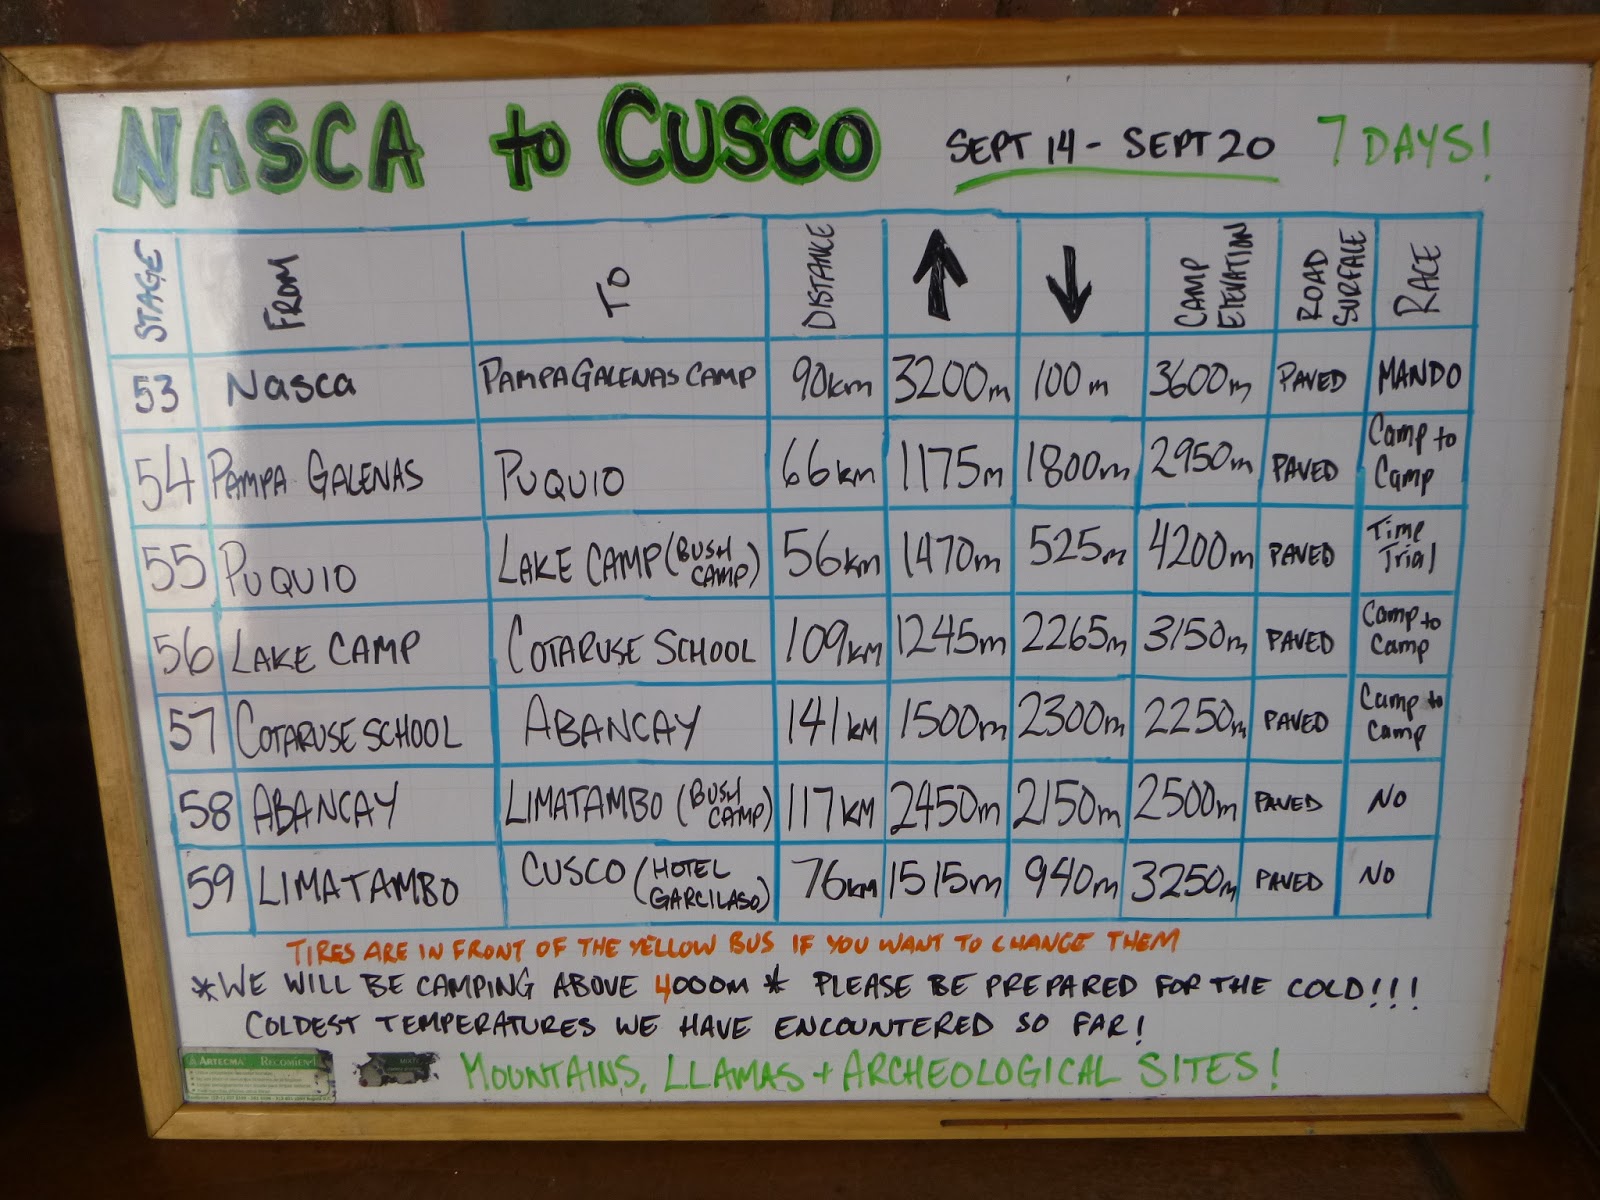 NASCA to CUSCO SEPT 14 - SEPT 20 7 DAYS!
STAGE FROM TO DISTANCE ↑ ↓ CAMP ELEVATION ROAD SURFACE RACE
53 Nasca PAMPA GALENAS CAMP 90km 3200m 100m 3600m PAVED MANDO
54 PAMPA GALENAS PUQUIO 66km 1175m 1800m 2950m PAVED Camp to Camp
55 PUQUIO LAKE CAMP (BUSH CAMP) 56km 1470m 525m 4200m PAVED Time Trial
56 LAKE CAMP COTARUSE SCHOOL 109KM 1245m 2265m 3150m PAVED Camp to Camp
57 COTARUSE SCHOOL ABANCAY 141KM 1500m 2300m 2250m PAVED Camp to Camp
58 ABANCAY LIMATAMBO (BUSH CAMP) 117KM 2450m 2150m 2500m PAVED NO
59 LIMATAMBO CUSCO (HOTEL GARCILASO) 76KM 1515m 940m 3250m PAVED NO
TIRES ARE IN FRONT OF THE YELLOW BUS IF YOU WANT TO CHANGE THEM
*WE WILL BE CAMPING ABOVE 4000m * PLEASE BE PREPARED FOR THE COLD!!!
COLDEST TEMPERATURES WE HAVE ENCOUNTERED SO FAR!
MOUNTAINS, LLAMAS + ARCHEOLOGICAL SITES!
ARTECMA